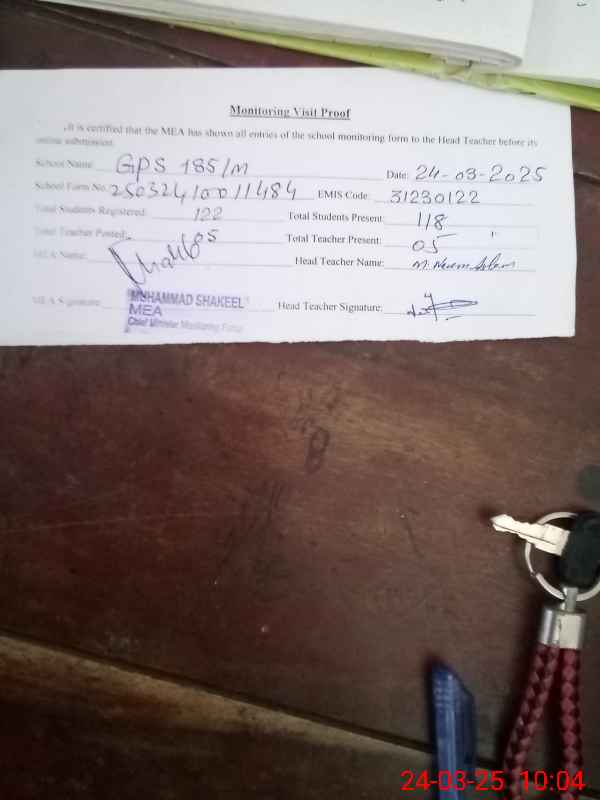 Monitoring Visit Proof
It is certified that the MEA has shown all entries of the school monitoring form to the Head Teacher before its
online submission.
School Name: GPS 185/M Date: 24-03-2025
School Form No. 25032410011484 EMIS Code: 31230122
Total Students Registered: 122 Total Students Present: 118
Total Teacher Posted: 05 Total Teacher Present: 05
MEA Name: Head Teacher Name: M. Naeem Aslam
MEA Signature: MUHAMMAD SHAKEEL Head Teacher Signature:
MEA
Chief Minister Monitoring Force
24-03-25 10:04